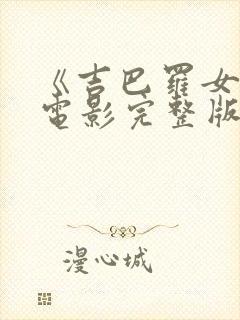 《吉巴羅女
電影完整版
漫心城